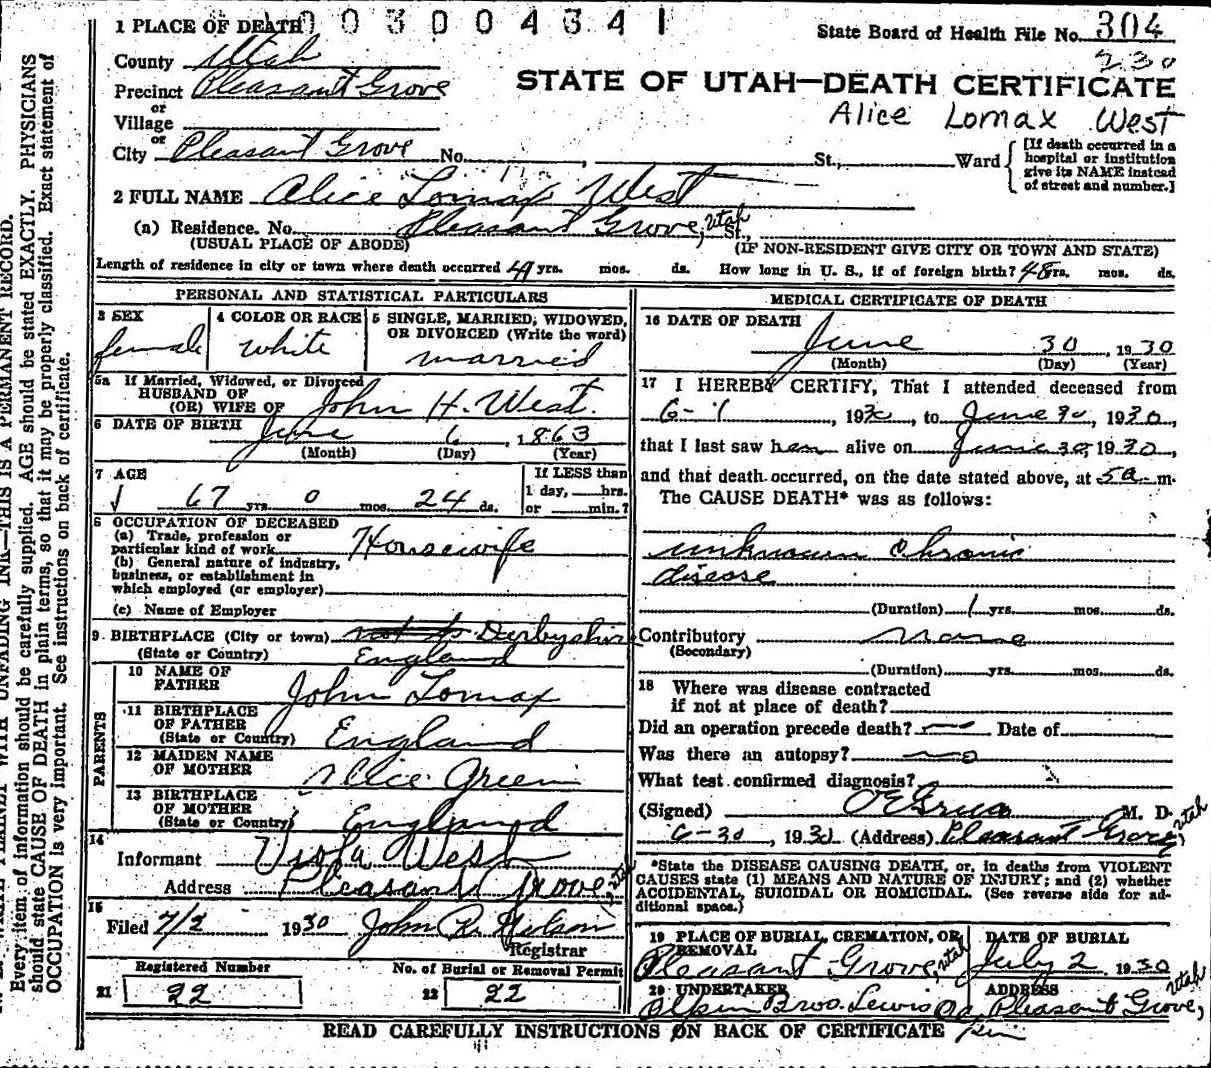 1 PLACE OF DEATH 003004341
State Board of Health File No. 304
230
County Utah
STATE OF UTAH—DEATH CERTIFICATE
Precinct Pleasant Grove
or
Village
Alice Lomax West
or
City Pleasant Grove No. , St., Ward
[If death occurred in a
hospital or institution
give its NAME instead
of street and number.]
2 FULL NAME Alice Lomax West
(a) Residence. No. Pleasant Grove, Utah St.,
(USUAL PLACE OF ABODE) (IF NON-RESIDENT GIVE CITY OR TOWN AND STATE)
Length of residence in city or town where death occurred 49 yrs. mos. ds. How long in U. S., if of foreign birth? 48 rs. mos. ds.
PERSONAL AND STATISTICAL PARTICULARS
3 SEX
female
4 COLOR OR RACE
white
5 SINGLE, MARRIED, WIDOWED,
OR DIVORCED (Write the word)
married
5a If Married, Widowed, or Divorced
HUSBAND OF
(OR) WIFE OF John H. West.
6 DATE OF BIRTH June 6, 1863
(Month) (Day) (Year)
7 AGE
67 yrs. 0 mos. 24 ds.
If LESS than
1 day, hrs.
or min.?
8 OCCUPATION OF DECEASED
(a) Trade, profession or
particular kind of work Housewife
(b) General nature of industry,
business, or establishment in
which employed (or employer)
(c) Name of Employer
9 BIRTHPLACE (City or town) Derbyshire
(State or Country) England
PARENTS
10 NAME OF
FATHER John Lomax
11 BIRTHPLACE
OF FATHER
(State or Country) England
12 MAIDEN NAME
OF MOTHER Alice Green
13 BIRTHPLACE
OF MOTHER
(State or Country) England
14
Informant Viola West
Address Pleasant Grove, Utah
15
Filed 7/2 1930
Registrar
Registered Number
21 22
No. of Burial or Removal Permit
22 22
MEDICAL CERTIFICATE OF DEATH
16 DATE OF DEATH
June 30, 1930
(Month) (Day) (Year)
17 I HEREBY CERTIFY, That I attended deceased from
6-1, 1930, to June 30, 1930,
that I last saw her alive on June 30, 1930,
and that death occurred, on the date stated above, at 5a m.
The CAUSE DEATH* was as follows:
unknown chronic
disease
(Duration) 1 yrs. mos. ds.
Contributory none
(Secondary)
(Duration) yrs. mos. ds.
18 Where was disease contracted
if not at place of death?
Did an operation precede death? Date of
Was there an autopsy? no
What test confirmed diagnosis?
(Signed) M. D.
6-30, 1930 (Address) Pleasant Grove, Utah
*State the DISEASE CAUSING DEATH, or, in deaths from VIOLENT
CAUSES state (1) MEANS AND NATURE OF INJURY; and (2) whether
ACCIDENTAL, SUICIDAL OR HOMICIDAL. (See reverse side for ad-
ditional space.)
19 PLACE OF BURIAL, CREMATION, OR
REMOVAL
Pleasant Grove, Utah
DATE OF BURIAL
July 2, 1930
20 UNDERTAKER
ADDRESS
Pleasant Grove, Utah
READ CAREFULLY INSTRUCTIONS ON BACK OF CERTIFICATE
UNFADING INK—THIS IS A PERMANENT RECORD.
Every item of information should be carefully supplied. AGE should be stated EXACTLY. PHYSICIANS
should state CAUSE OF DEATH in plain terms, so that it may be properly classified. Exact statement of
OCCUPATION is very important. See instructions on back of certificate.